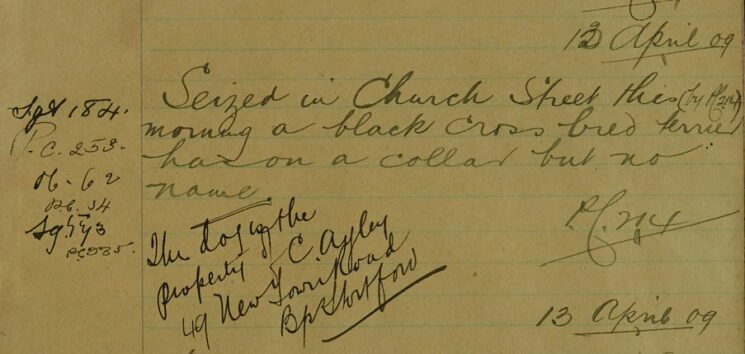 13 April 09
Sgt 184.
P.C. 253.
62
P.C. 34
Sgt 593
P.C. 235.
Seized in Church Street this (by PC 214)
morning a black cross bred terrier
has on a collar but no
name.
P.C. 214
The Dog is the
property of C. Ayley
49 New Town Road
Bp Stortford
13 April 09